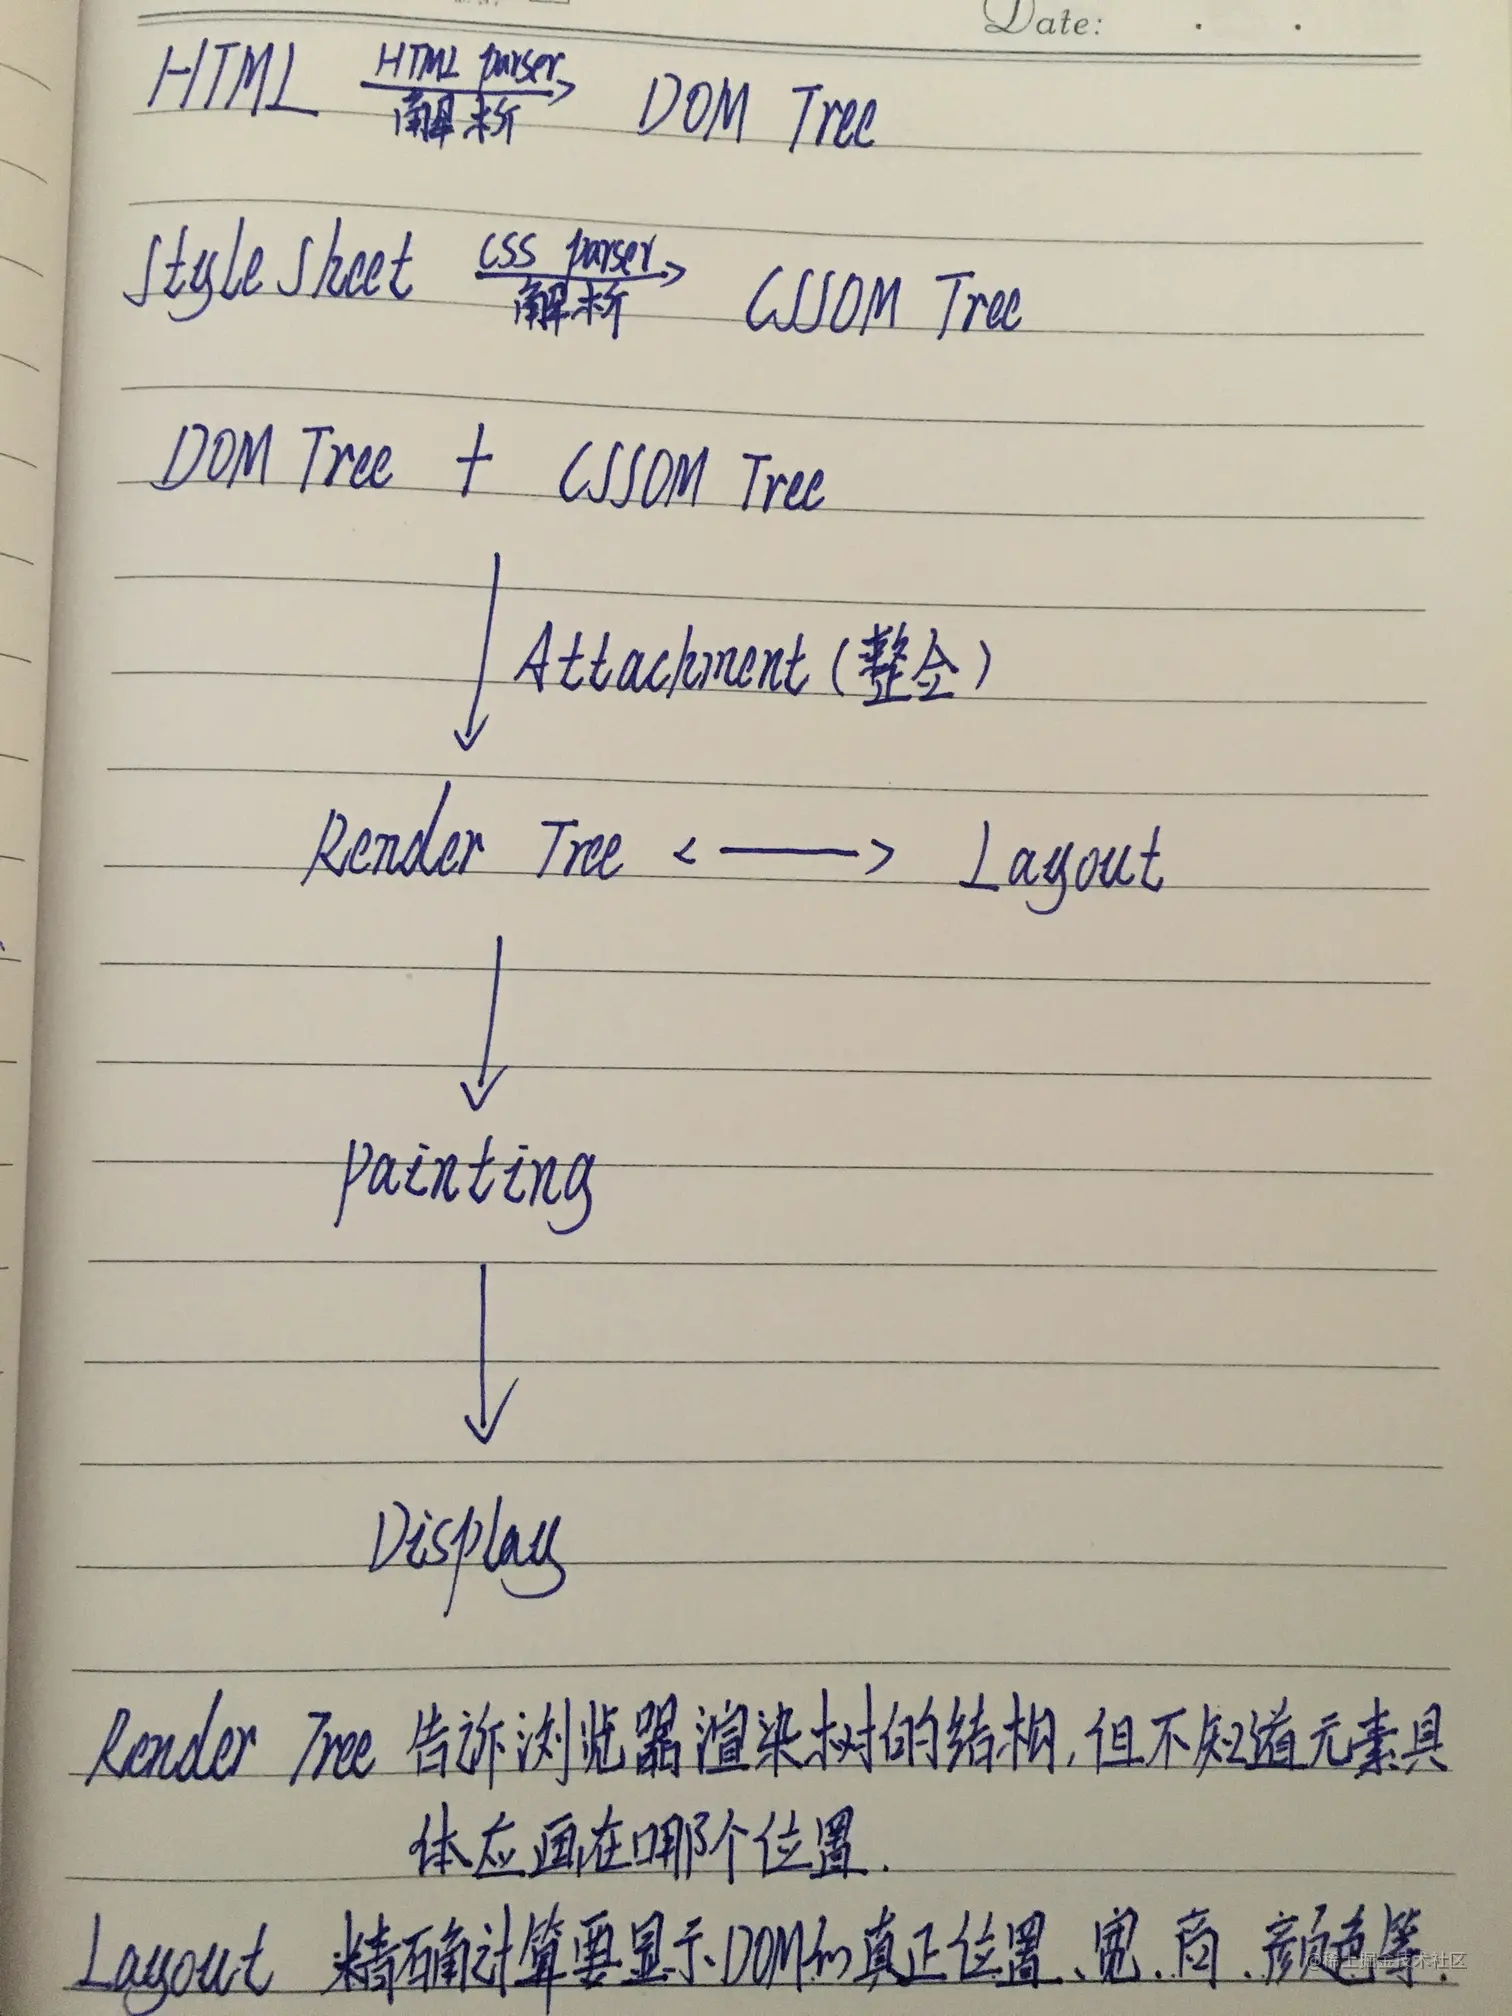 Date:
HTML HTML parser 解析 DOM Tree
StyleSheet CSS parser 解析 CSSOM Tree
DOM Tree + CSSOM Tree
Attachment (整合)
Render Tree <——> Layout
painting
Display
Render Tree 告诉浏览器渲染树的结构,但不知道元素具
体应画在哪个位置.
Layout 精确计算要显示DOM的真正位置、宽、高、颜色等.
@稀土掘金技术社区